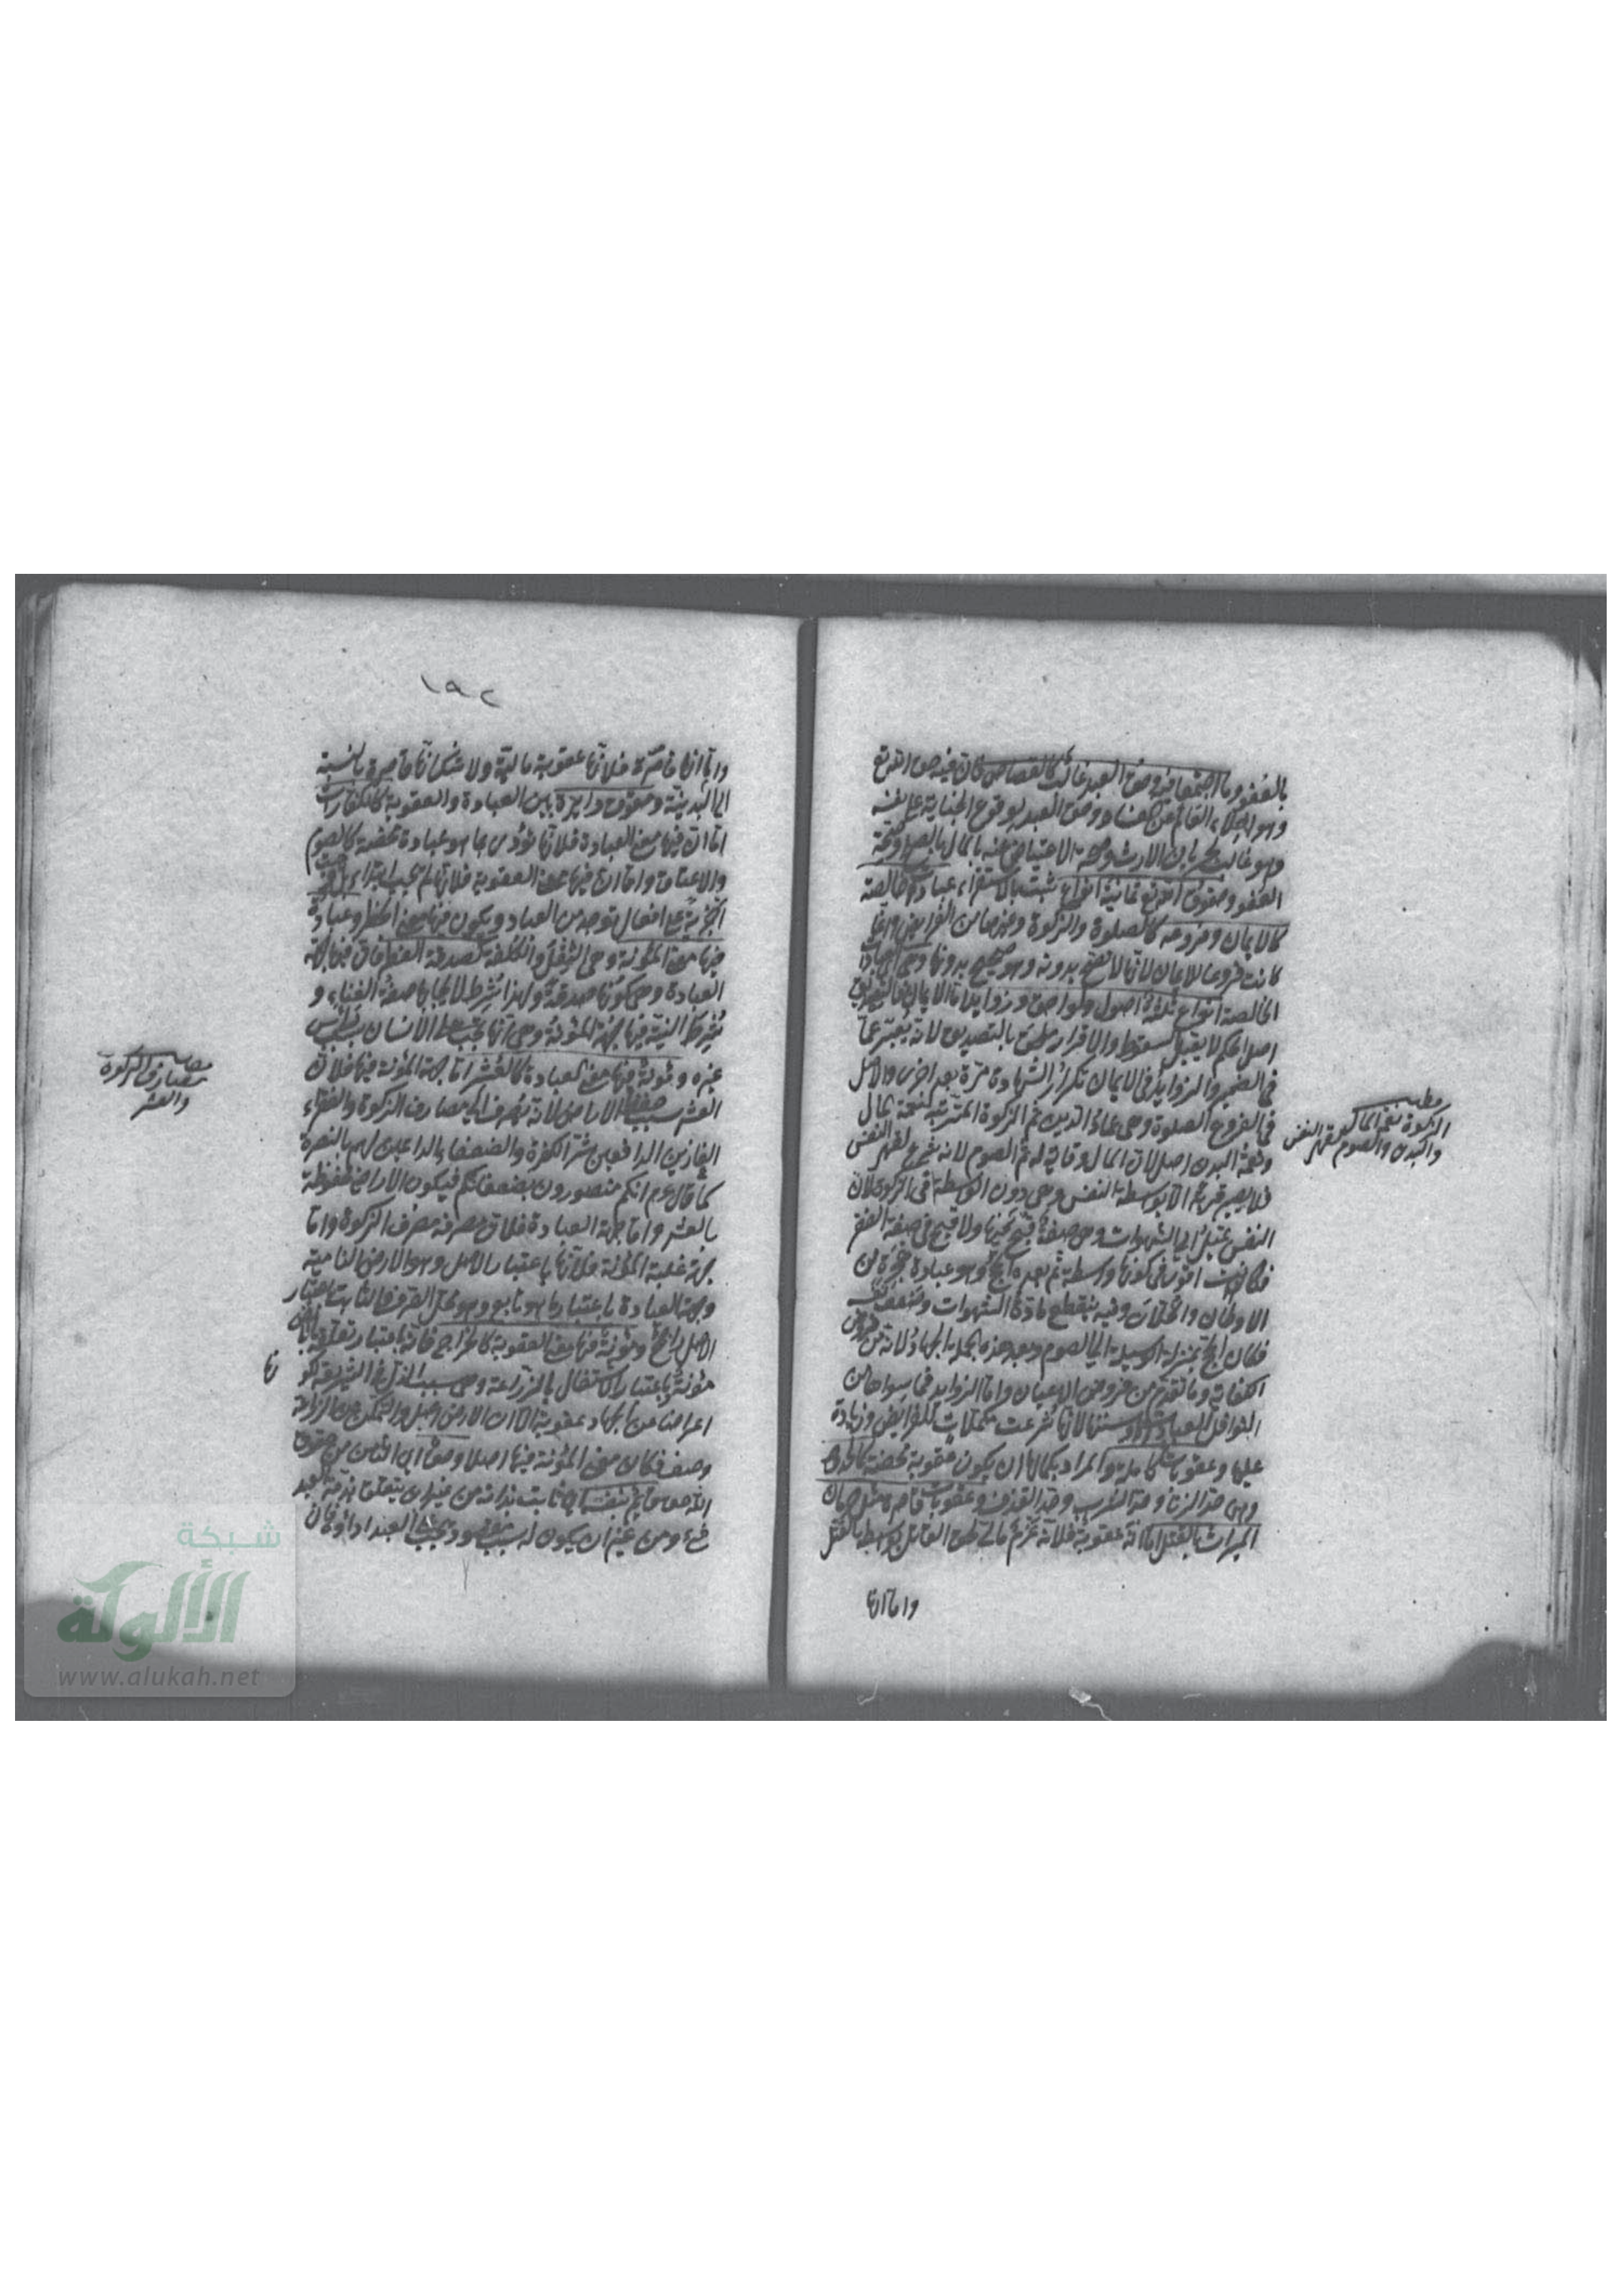 بالعفو وما اجتمعا فيه وحق العبد غالب كالقصاص فان فيه حق الله تع
وهو اخلاء العالم عن الفساد وحق العبد بوقوع الجناية على نفسه
وهو غالب لجريان الارث وصحة الاعتياض عنه بالمال بالصلح وصحة
العفو وحقوق الله تع ثمانية انواع ثبت بالاستقراء عبادة خالصة
كالايمان وفروعه كالصلوة والزكوة وغيرهما من الفرائض وانما
كانت فروعا للايمان لانها لا تصح بدونه وهو صحيح بدونها وهى اى العبادات
الخالصة انواع ثلثة اصول ولواحق وزوايد اما الايمان فالتصديق
اصل محكم لا يقبل السقوط والاقرار ملحق بالتصديق لانه يعبر عما
فى الضمير والزوايد فى الايمان تكرار الشهادة مرة بعد اخرى والاصل
فى الفروع الصلوة وهى عماد الدين ثم الزكوة المترتبة نعمة المال
ونعمة البدن اصل لان المال وقاية له ثم الصوم لانه شرع لقهر النفس
فلا يصير قربة الا بواسطة النفس وهى دون الواسطة فى الزكوة لان
النفس تميل الى الشهوات وهى صفة قبح فيها ولا قبح فى صفة الفقر
فكانت اقوى فى كونها واسطة ثم بعده الحج وهو عبادة هجرة عن
الاوطان والخلان وفيه ينقطع مادة الشهوات وتضعف
فكان الحج بمنزلة الوسيلة الى الصوم وبعد هذه الجملة الجهاد لانه من فروض
الكفاية وما تقدم من فروض الاعيان واما الزوايد فما سواها من
النوافل العبادات وسننها لانها شرعت مكملات للفرايض وزيادة
عليها وعقوبات كاملة والمراد بكمالها ان يكون عقوبة محضة كالحدود
وهى حد الزنا وحد الشرب وحد القذف وعقوبات قاصرة مثل حرمان
الميراث بالقتل اما انه عقوبة فلانه غرم مالى لحق القاتل بواسطة القتل
واما انها
مطلب
الزكوة نعمة المال
والبدن والصوم لقهر النفس
١٩٢
واما انها قاصرة فلانها عقوبة مالية ولا شك انها قاصرة بالنسبة
الى البدنية وحقوق دايرة بين العبادة والعقوبة كالكفارات
اما ان فيها معنى العبادة فلانها تؤدى بما هو عبادة محضة كالصوم
والاعتاق واما ان فيها معنى العقوبة فلانها لم تجب ابتداء بل وجبت
اجزية على افعال توجد من العباد ويكون فيها معنى الحظر وعبادة
فيها معنى المؤنة وهى الثقل والكلفة كصدقة الفطر فان فيها جهة
العبادة وهى كونها صدقة ولهذا شرط لايجابها صفة الغناء و
شرط النية فيها وجهة المؤنة وهى انها تجب على الانسان بسبب
غيره ومؤنة فيها معنى العبادة كالعشر اما جهة المؤنة فيها فلان
العشر سبب حفظ الاراضى لانه يصرف الى مصارف الزكوة والفقراء
الغازين الدافعين شر الكفرة والضعفاء الداعين لهم بالنصرة
كما قال عم انكم منصورون بضعفائكم فيكون الاراضى محفوظة
بالعشر واما جهة العبادة فلان مصرفه مصرف الزكوة واما
جهة غلبة المؤنة فلانها باعتبار الاصل وهو الارض النامية
وجهة العبادة باعتبار ما هو تابع وهو محل الصرف والثابت باعتبار
الاصل راجح ومؤنة فيها معنى العقوبة كالخراج فانه باعتبار تعلقه بالارض
مؤنة وباعتبار الاشتغال بالزراعة وهى سبب الذل فى الشريعة لكونها
اعراضا عن الجهاد عقوبة الا ان الارض اصل والتمكن من الزراعة
وصف فكان معنى المؤنة فيها اصلا وحق اى الثامن من حقوق
الله حق قائم بنفسه اى ثابت بذاته من غير ان يتعلق بذمة العبد
شىء ومن غير ان يكون له سبب مقصود يجب على العبد اداؤه فان
مطلب
مصارف الزكوة
والعشر
شبكة
الألوكة
www.alukah.net